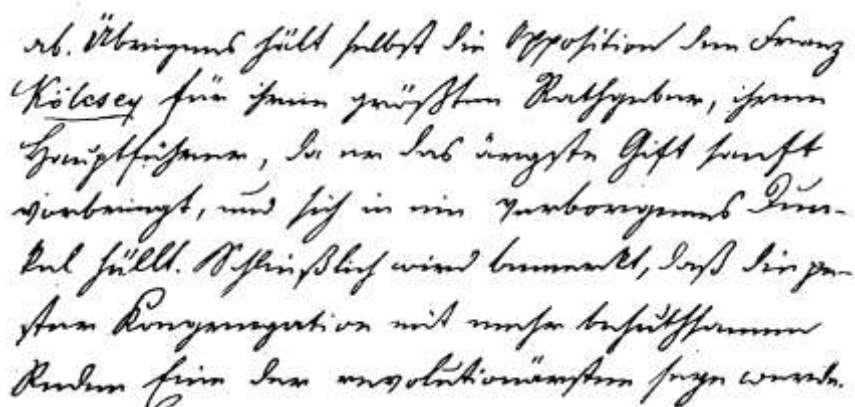 ab. Übrigens hält selbst die Opposition den Franz
Kölcsey für ihren größten Rathgeber, ihren
Hauptführer, da er das ärgste Gift sanft
vorbringt, und sich in ein verborgenes Dun-
kel hüllt. Schließlich wird bemerkt, daß die pe-
ster Kongregation mit mehr behuthsamen
Reden Eine der revolutionärsten seyn werde.